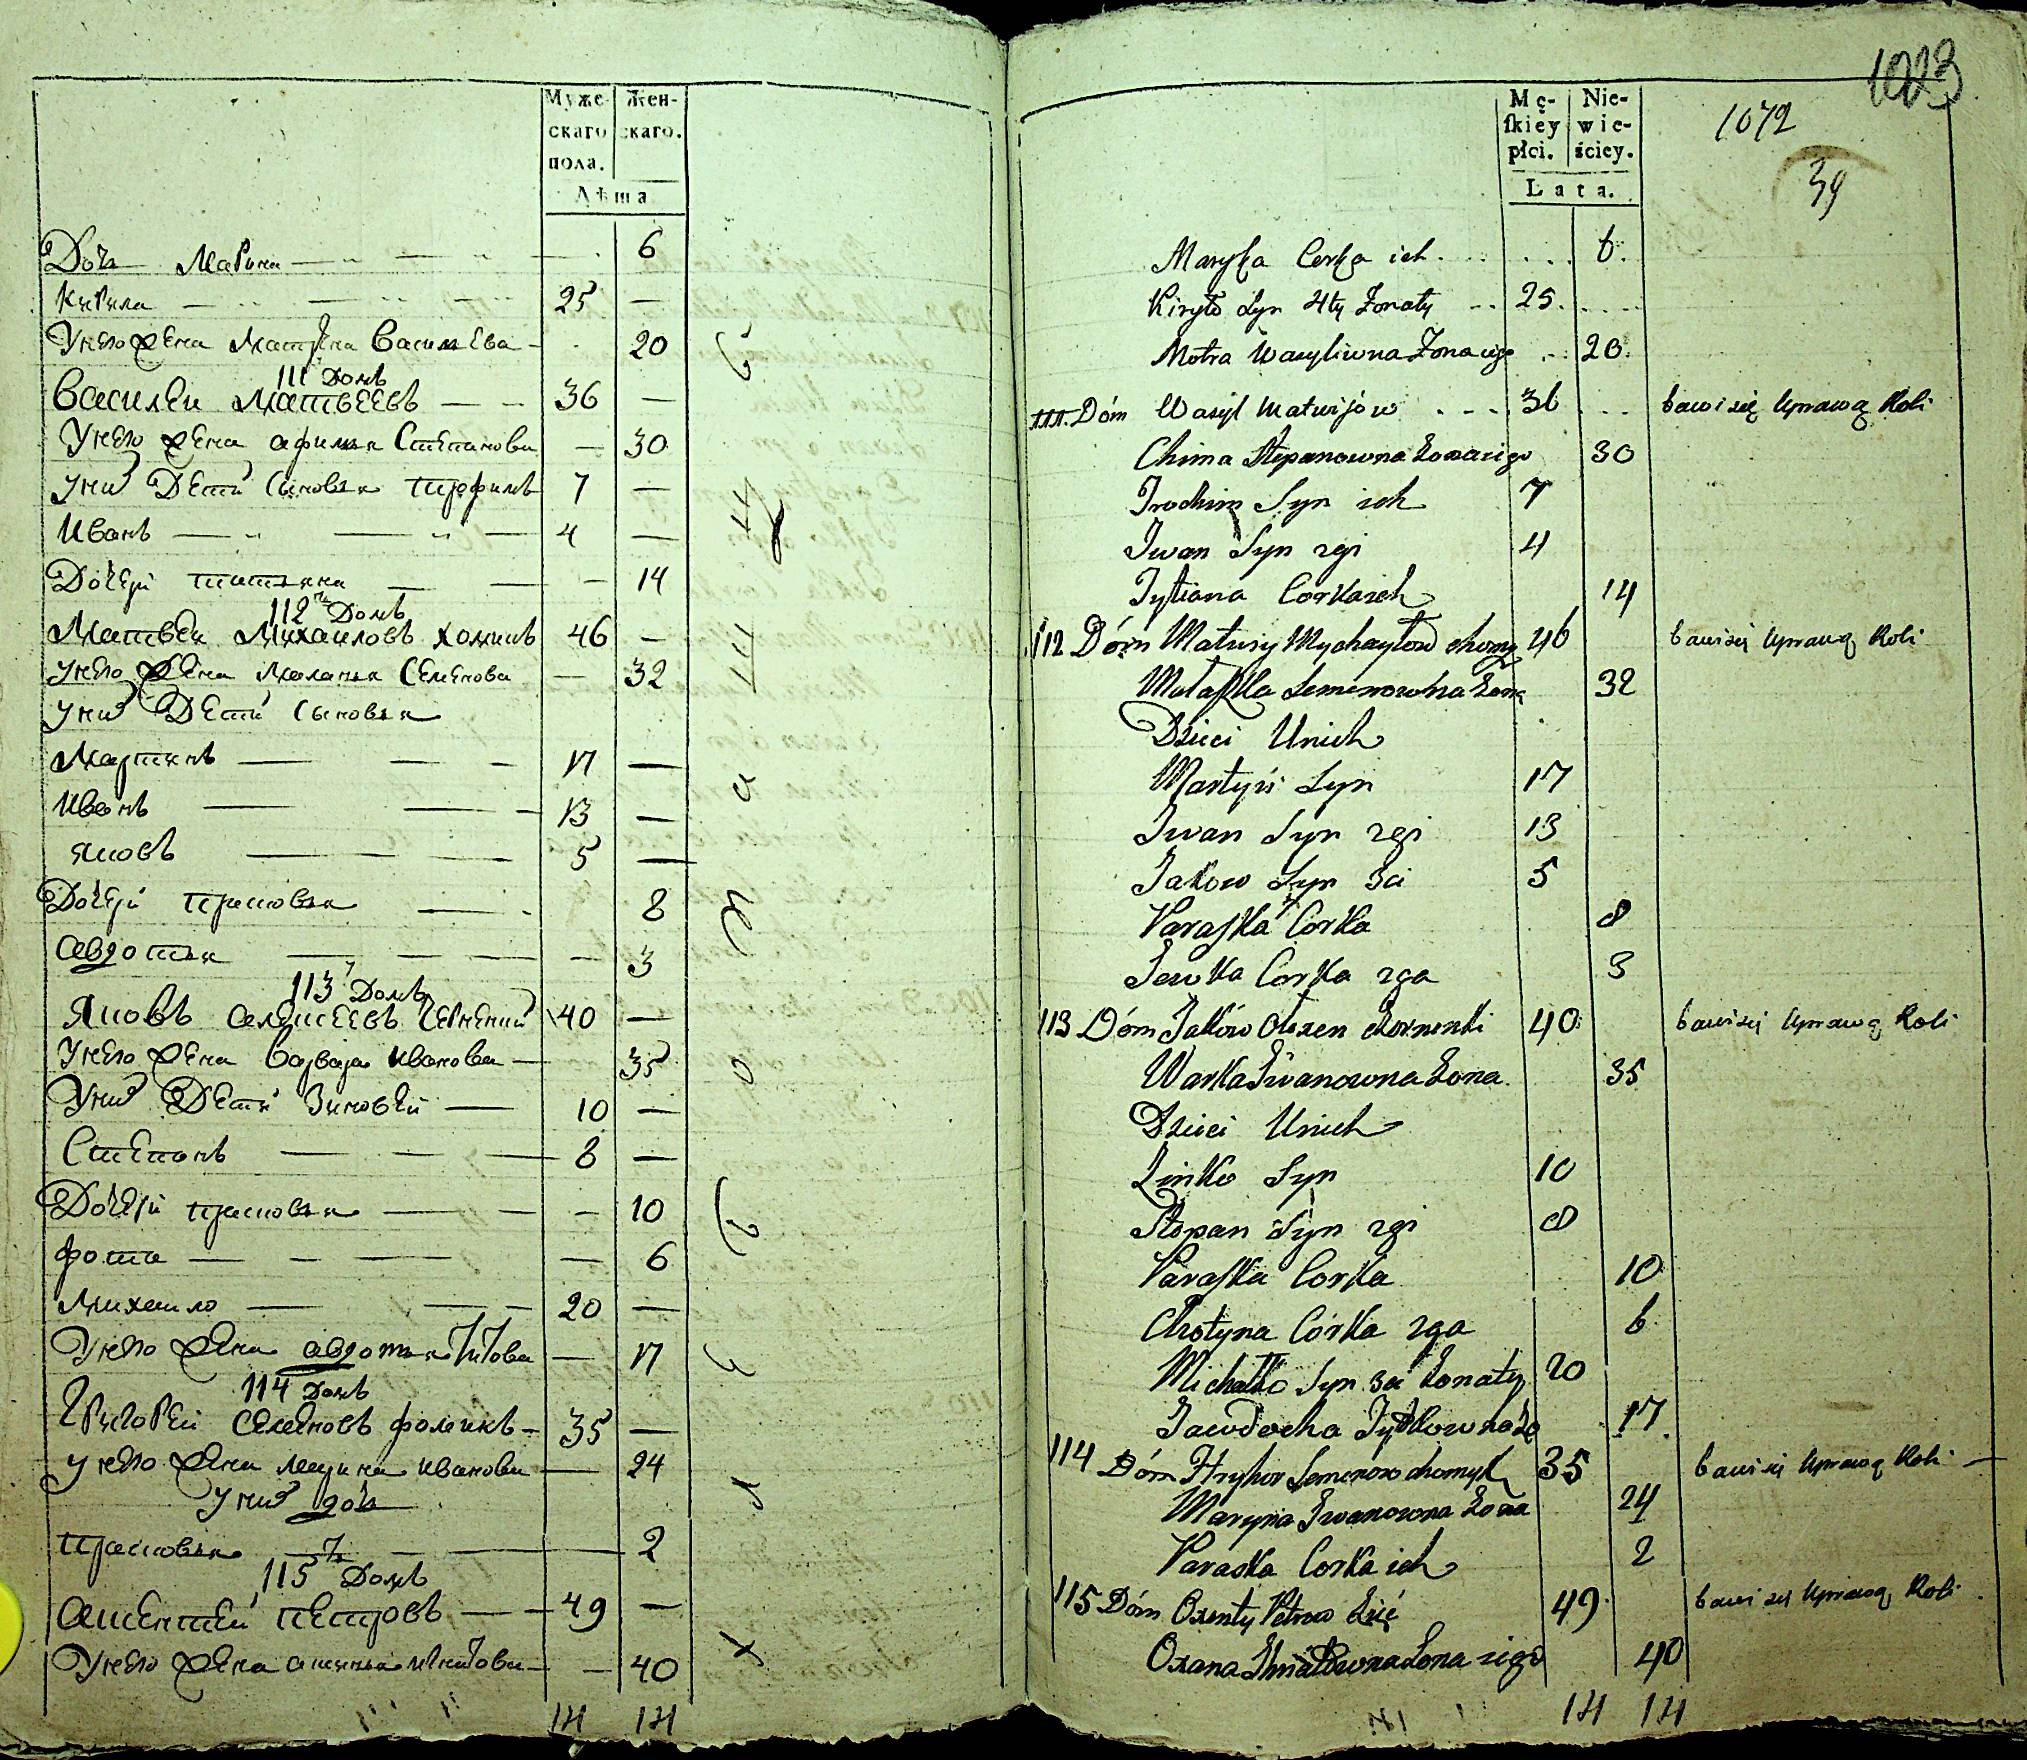 Муже- Жен-
скаго скаго.
пола.
Лѣта
Дочь Марина — — 6
Кирила — — 25 —
У него жена Матрена Васильева — 20
111 Домъ
Василей Матвеевъ — — 36 —
У него жена Афимья Степанова — 30
У них дети Сыновья Трофимъ 7 —
Иванъ — — 4 —
Дочери Татьяна — — 14
112 Домъ
Матвей Михаиловъ Хомикъ 46 —
У него жена Маланья Семенова — 32
У них Дети Сыновья
Мартинъ — — 17 —
Иванъ — — 13 —
Яковъ — — 5 —
Дочери Прасковья — 8
Авдотья — — 3
113 Домъ
Яковъ Алексеевъ Черненкий 40 —
У него жена Варвара Иванова — 35
У них Дети Зиновей — 10 —
Степанъ — — 8 —
Дочери Прасковья — — 10
Фотина — — 6
Михаило — — 20 —
У него жена Авдотья Титова — 17
114 Домъ
Григорей Семеновъ Фомикъ — 35 —
У него жена Марина Иванова — 24
У них дочь
Прасковья — — 2
115 Домъ
Аксентей Петровъ — — 49 —
У него жена Аксинья Игнатова — — 40
14 14
1023
Mę- Nie-
skiey wie-
płci. ściey.
Lata.
1072
39
Maryja Corka ich 6
Kiryło Syn 4ty Żonaty 25
Motra Wasyliwna Żona iego 20
111. Dóm Wasyl Matwijów 36 bawi się Uprawą Roli
Chima Stepanowna Żona iego 30
Trochim Syn ich 7
Iwan Syn 2gi 4
Tytiana Corka ich 14
112 Dóm Matwiy Mychayłow Chomyk 46 bawi się Uprawą Roli
Małaszka Semenowna Żona 32
Dzieci U nich
Martyn Syn 17
Iwan Syn 2gi 13
Jakow Syn 3ci 5
Paraska Corka 8
Jewka Corka 2ga 3
113 Dóm Jaków Olexen Czornenki 40 bawi się Uprawą Roli
Warka Iwanowna Żona 35
Dzieci U nich
Zinko Syn 10
Stepan Syn 2gi 8
Paraska Corka 10
Chotyna Córka 2ga 6
Michałko Syn 3ci Żonaty 20
Jawdocha Tytkowna Żo 17
114 Dóm Hryhor Semenow Chomyk 35 bawi się Uprawą Roli
Maryna Iwanowna Żona 24
Paraska Corka ich 2
115 Dóm Oxenty Petrow 49 bawi się Uprawą Roli
Oxana Hnatowna Żona iego 40
14 14